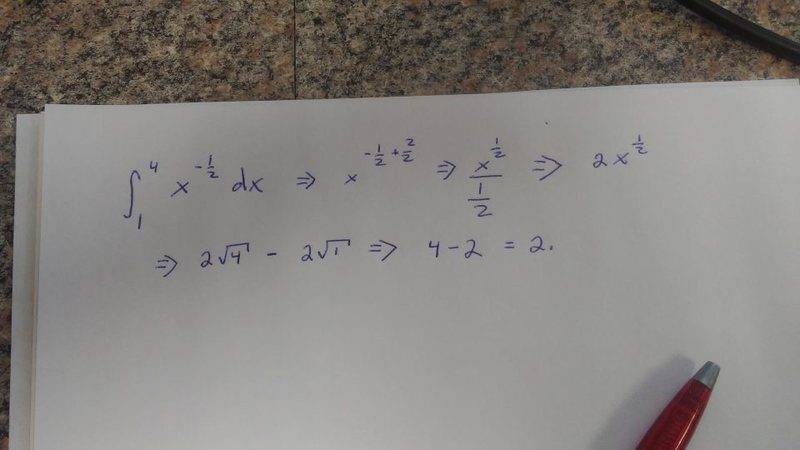 ∫₁⁴ x^{-1/2} dx ⇒ x^{-1/2 + 2/2} ⇒ x^{1/2} / (1/2) ⇒ 2x^{1/2}
⇒ 2√4 - 2√1 ⇒ 4-2 = 2.